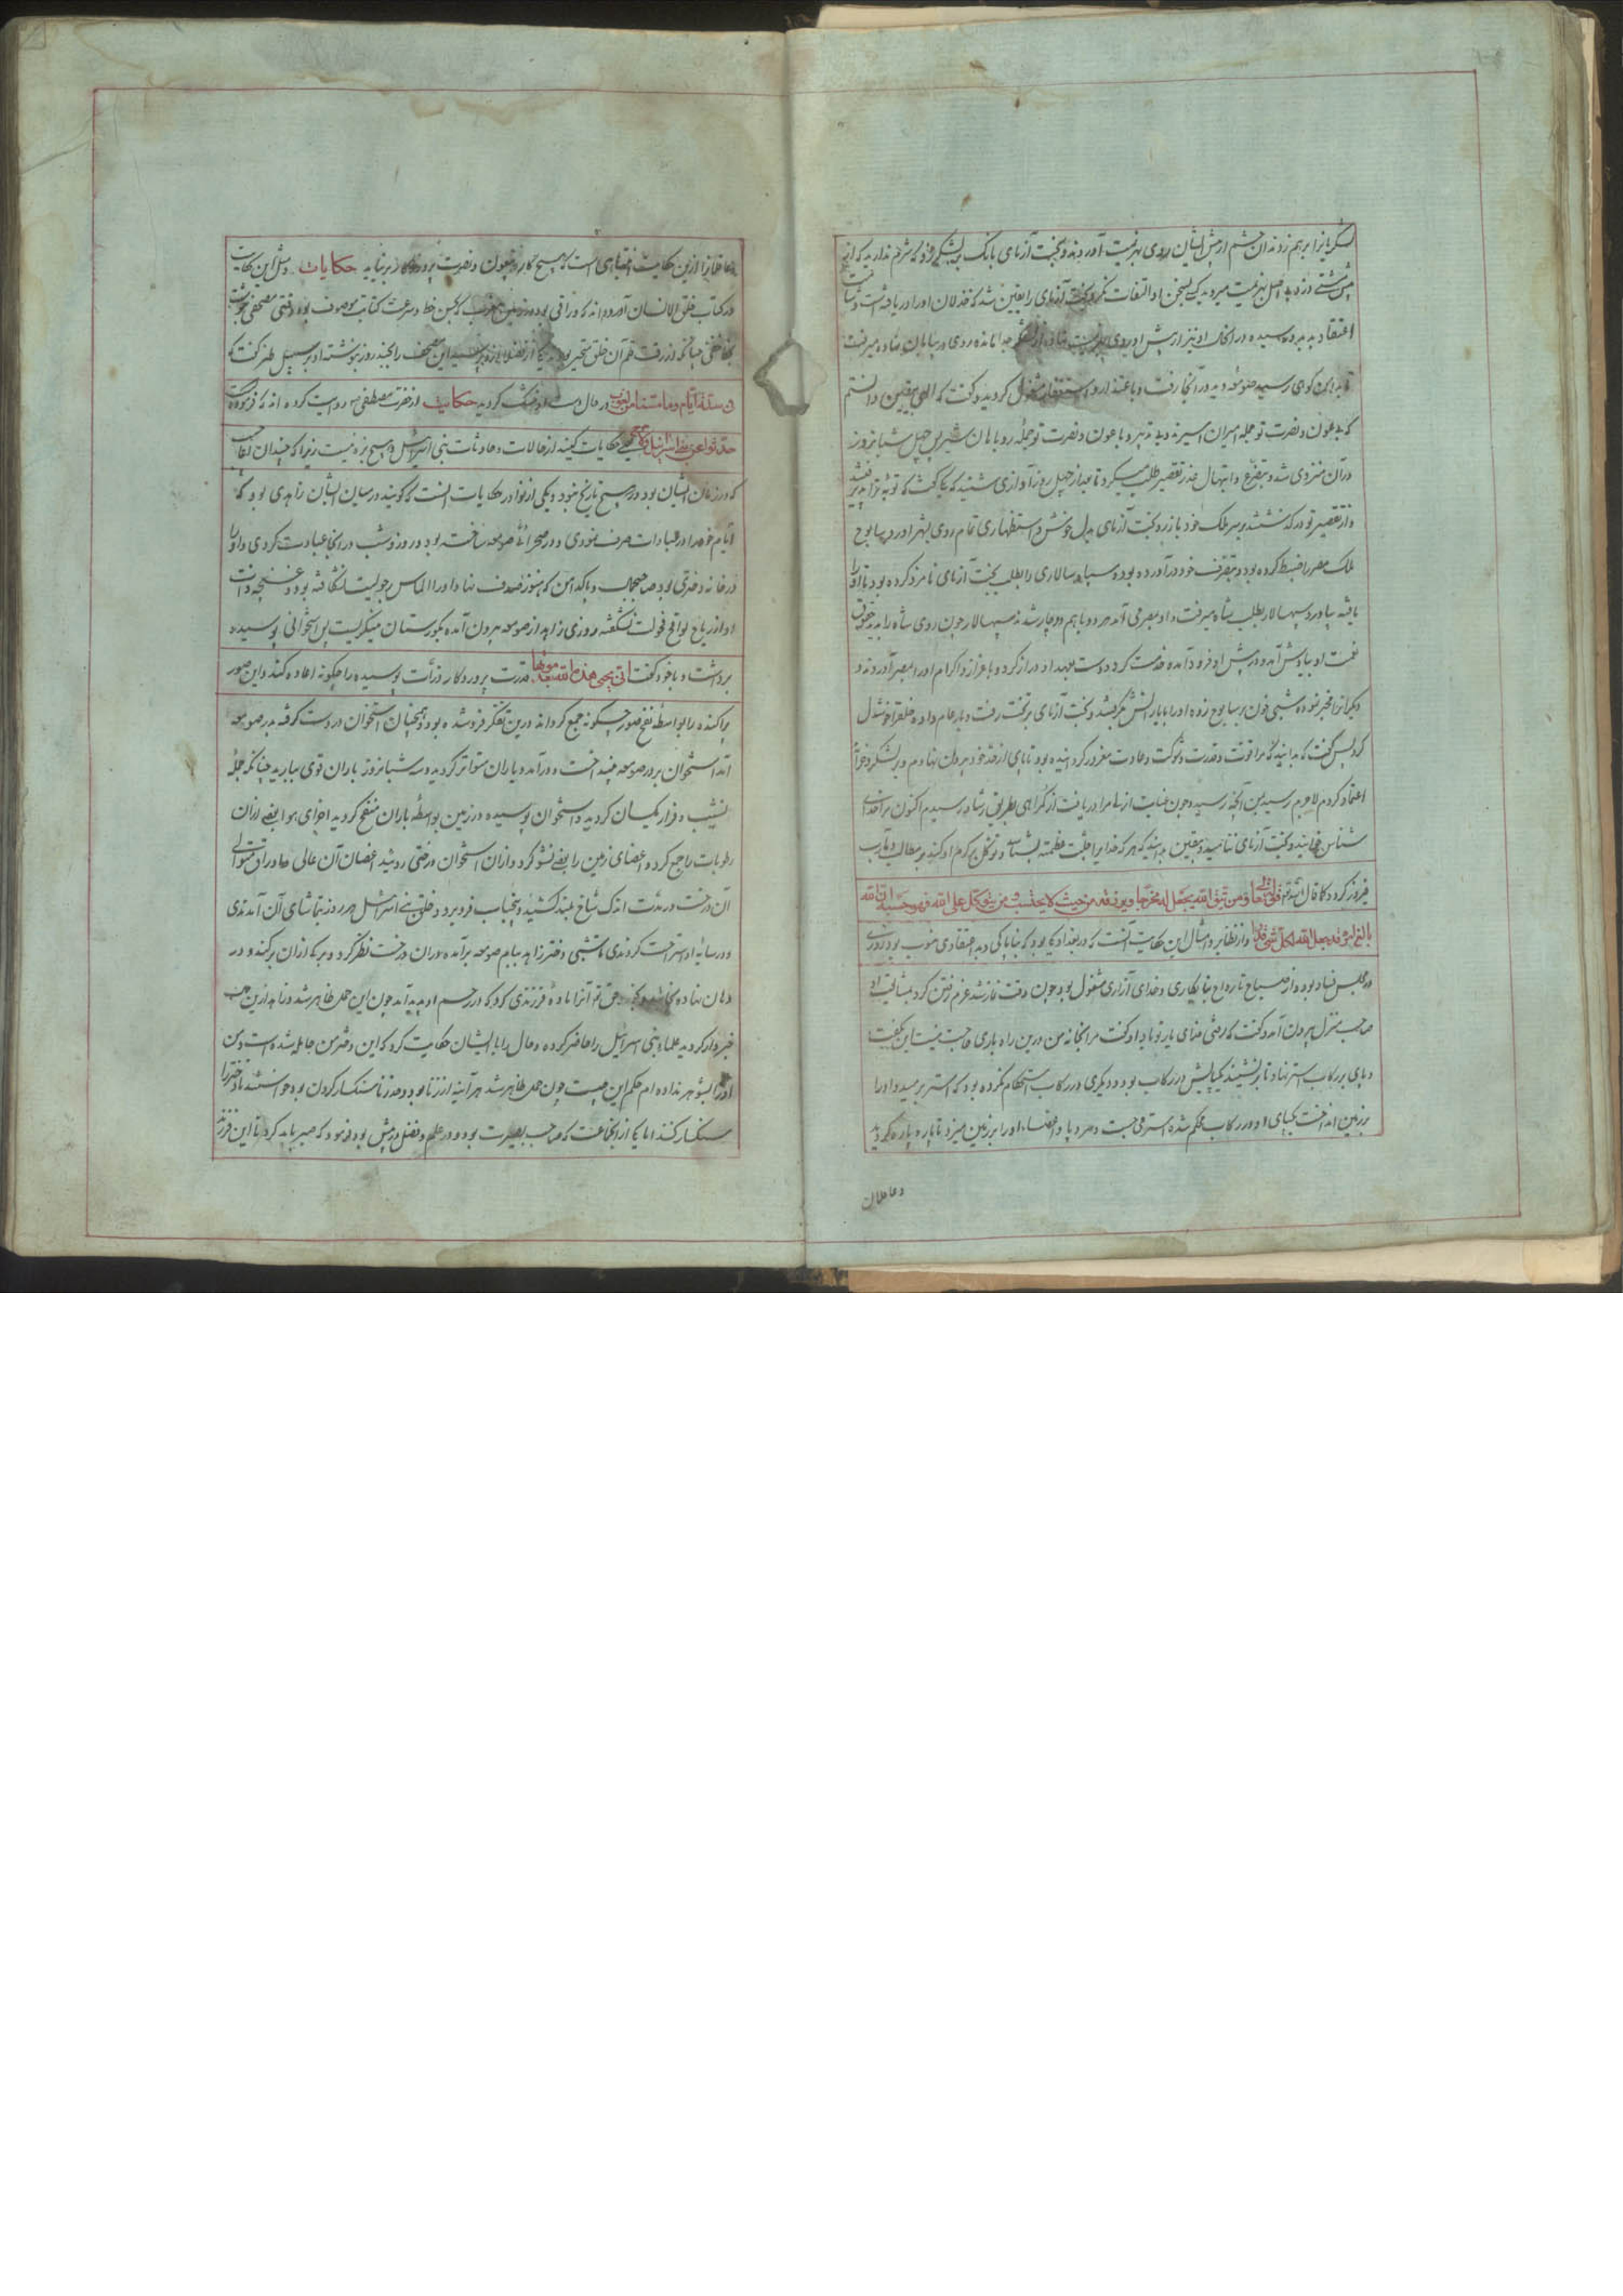 لشکریانرا برهم زدند آن حشم از پیش ایشان روی بهزیمت آوردند و بخت آزمای بانگ بر لشکر زد که شرم ندارید که از
مشتی دزد بد اصل بهزیمت میروید کسی بسخن او التفات نکرد بخت آزمای را یقین شد که خذلان او را دریافته است و
اعتقاد بد بدو رسیده در آنحال او نیز از پیش او روی بهزیمت نهاد و از لشکر جدا مانده روی در بیابان نهاده میرفت
تا بدامن کوهی رسید صومعه دید در آنجا رفت و باعتذار و استغفار مشغول گردید و گفت که الهی بیقین دانستم
که بدعون و نصرت تو جمله امیران اسیرند و بی تدبیر و با عون و نصرت تو جمله روباهان شیر پس چهل شبانروز
در آن منزوی شد و بتضرع و ابتهال عذر تقصیر طلب میکرد تا بعد از چهل روز آوازی شنید که یکی گفت که توبه ترا پذیرفتند
و از تقصیر تو در گذشتند بر سر ملک خود باز رو بخت آزمای بدل خوش و استظهاری تمام روی بشهر آورد و سیابوح
ملک مصر را ضبط کرده بود و بتصرف خود درآورده بود و سپاه سالاری را بطلب بخت آزمای نامزد کرده بود تا او را
یافته بیاورد سپهسالار بطلب شاه میرفت و او بمصر می آمد هر دو باهم دوچار شدند سپهسالار چون روی شاه را بدید حقوق
نعمت او بیادش آمد و در پیش او فرود آمده خدمت کرد و دست بعهد او دراز کرده و باعزاز و اکرام او را بمصر آوردند و
دیگرانرا مخبر نموده شبیخون بر سیابوح زده او را با یارانش بگرفتند و بخت آزمای بر تخت رفت و بار عام داده خلق را خوشدل
کرد پس گفت که بدانید که مرا قوت و قدرت و شوکت و عادت مغرور گردانیده بود تا پای از حد خود بیرون نهادم و بر لشکر و خزانه
اعتماد کردم لاجرم رسید بمن آنچه رسید و چون عنایت ازلی مرا دریافت از گمراهی بطریق رشاد رسیدم اکنون مرا خدای
شناس خوانید و بخت آزمای ننامید و بیقین بدانید که هر که خدایرا جلت عظمته بشناسد و توکل بر کرم او کند بر مطالب و مآرب
فیروز گردد کما قال الله تعالی و من یتق الله یجعل له مخرجا و یرزقه من حیث لا یحتسب و من یتوکل علی الله فهو حسبه ان الله
بالغ امره قد جعل الله لکل شیء قدرا و از نظایر و امثال این حکایت آنست که در بغداد یکی بود که بناپاکی و بد اعتقادی منسوب بود روزی
در مجلس فساد بود و از صباح تا رواح بنابکاری و خدای آزاری مشغول بود چون وقت نماز شد عزم رفتن کرد بمشایعت او
صاحب منزل بیرون آمد و گفت که رضی خدای یار تو باد او گفت مرا بخانه من درین راه یاری حاجت نیست این بگفت
و پای بر رکاب استر نهاد تا بر نشیند یک پایش در رکاب بود و دیگری در رکاب استحکام نکرده بود که استر برمید و او را
بر زمین انداخت یکپای او در رکاب محکم شده استر می جست و سر و پا و اعضاء او را بر زمین میزد تا پاره پاره گردید
و عاقلان
و عاقلانرا ازین حکایت انتباهی است که هیچ کار بیعون و نصرت پروردگار بر نیاید حکایات و مثل این حکایت
در کتاب خلق الانسان آورده اند که وراقی بود در زمین مغرب که بحسن خط و سرعت کتابت موصوف بود وقتی مصحفی نوشت
بخط خفی چنانکه از رقت قلم آن خلق متحیر بودند یکی از فضلا از وی پرسید این مصحف را بچند روز نوشته او بر سبیل طنز گفت که
فی ستة ایام و ما مسنا من لغوب در حال دست او خشک گردید حکایت از حضرت مصطفی ص روایت کرده اند که فرموده است
حدثوا عن بنی اسرائیل و لا حرج یعنی حکایات کنید از حالات و حادثات بنی اسرائیل و هیچ بزه نیست زیرا که چندان اعاجیب
که در زمان ایشان بود در هیچ تاریخ نبود و یکی از نوادر حکایات آنست که گویند در میان ایشان زاهدی بود که
ایام خود را در عبادات صرف نمودی و در صحرائی صومعه ساخته بود و روز و شب در آنجا عبادت کردی و او را
در خانه دختری بود صاحبجمال و پاکدامن که هنوز صدف نهاد او را الماس رجولیت نشکافته بود و غنچه دانت
او از ریاح لواقح فحولت نشکفته روزی زاهد از صومعه بیرون آمده بگورستان مینگریست پس استخوانی پوسیده
برداشت و با خود گفت انی یحیی هذه الله بعد موتها قدرت پروردگار ذرات پوسیده را چگونه اعاده کند و این صور
پراکنده را بواسطه نفخ صور چگونه جمع گرداند درین تفکر فرو شده بود و همچنان استخوان در دست گرفته بدر صومعه
آمد استخوان بر در صومعه بینداخت و درآمد و باران متواتر گردید و سه شبانروز باران قوی ببارید چنانکه جمله
نشیب و فراز یکسان گردید و استخوان پوسیده در زمین بواسطه باران منفتح گردید اجزای هوا بعضی از آن
رطوبات راجع کرده اعضای زمین را بعضی نشو کرد و از آن استخوان درختی رویید اغصان آن عالی و اوراق متوالی
آن درخت در مدت اندک شاخ بلند کشید و بیخ بآب فرو برد و خلق بنی اسرائیل هر روز بتماشای آن آمدندی
و در سایه او استراحت کردندی تا شبی دختر زاهد ببام صومعه برآمده در آن درخت نظر کرد و برگی از آن برکند و در
دهان نهاد حق تعالی آنرا ماده فرزندی کرد که در رحم او پدید آمد چون این حمل ظاهر شد و زاهد ازین عجب
خبردار گردید علماء بنی اسرائیل را حاضر کرده و حال را با ایشان حکایت کرد که این دختر من حامله شده است و من
او را بشوهر نداده ام حکم این چیست چون حمل ظاهر شد هر آینه از زنا بود و حد زنا سنگسار کردن بود خواستند تا دختر را
سنگسار کنند اما یکی از آنجماعت که صاحب بصیرت بود و در علم و فضل در پیش بود فرمود که صبر باید کرد تا این فرزند